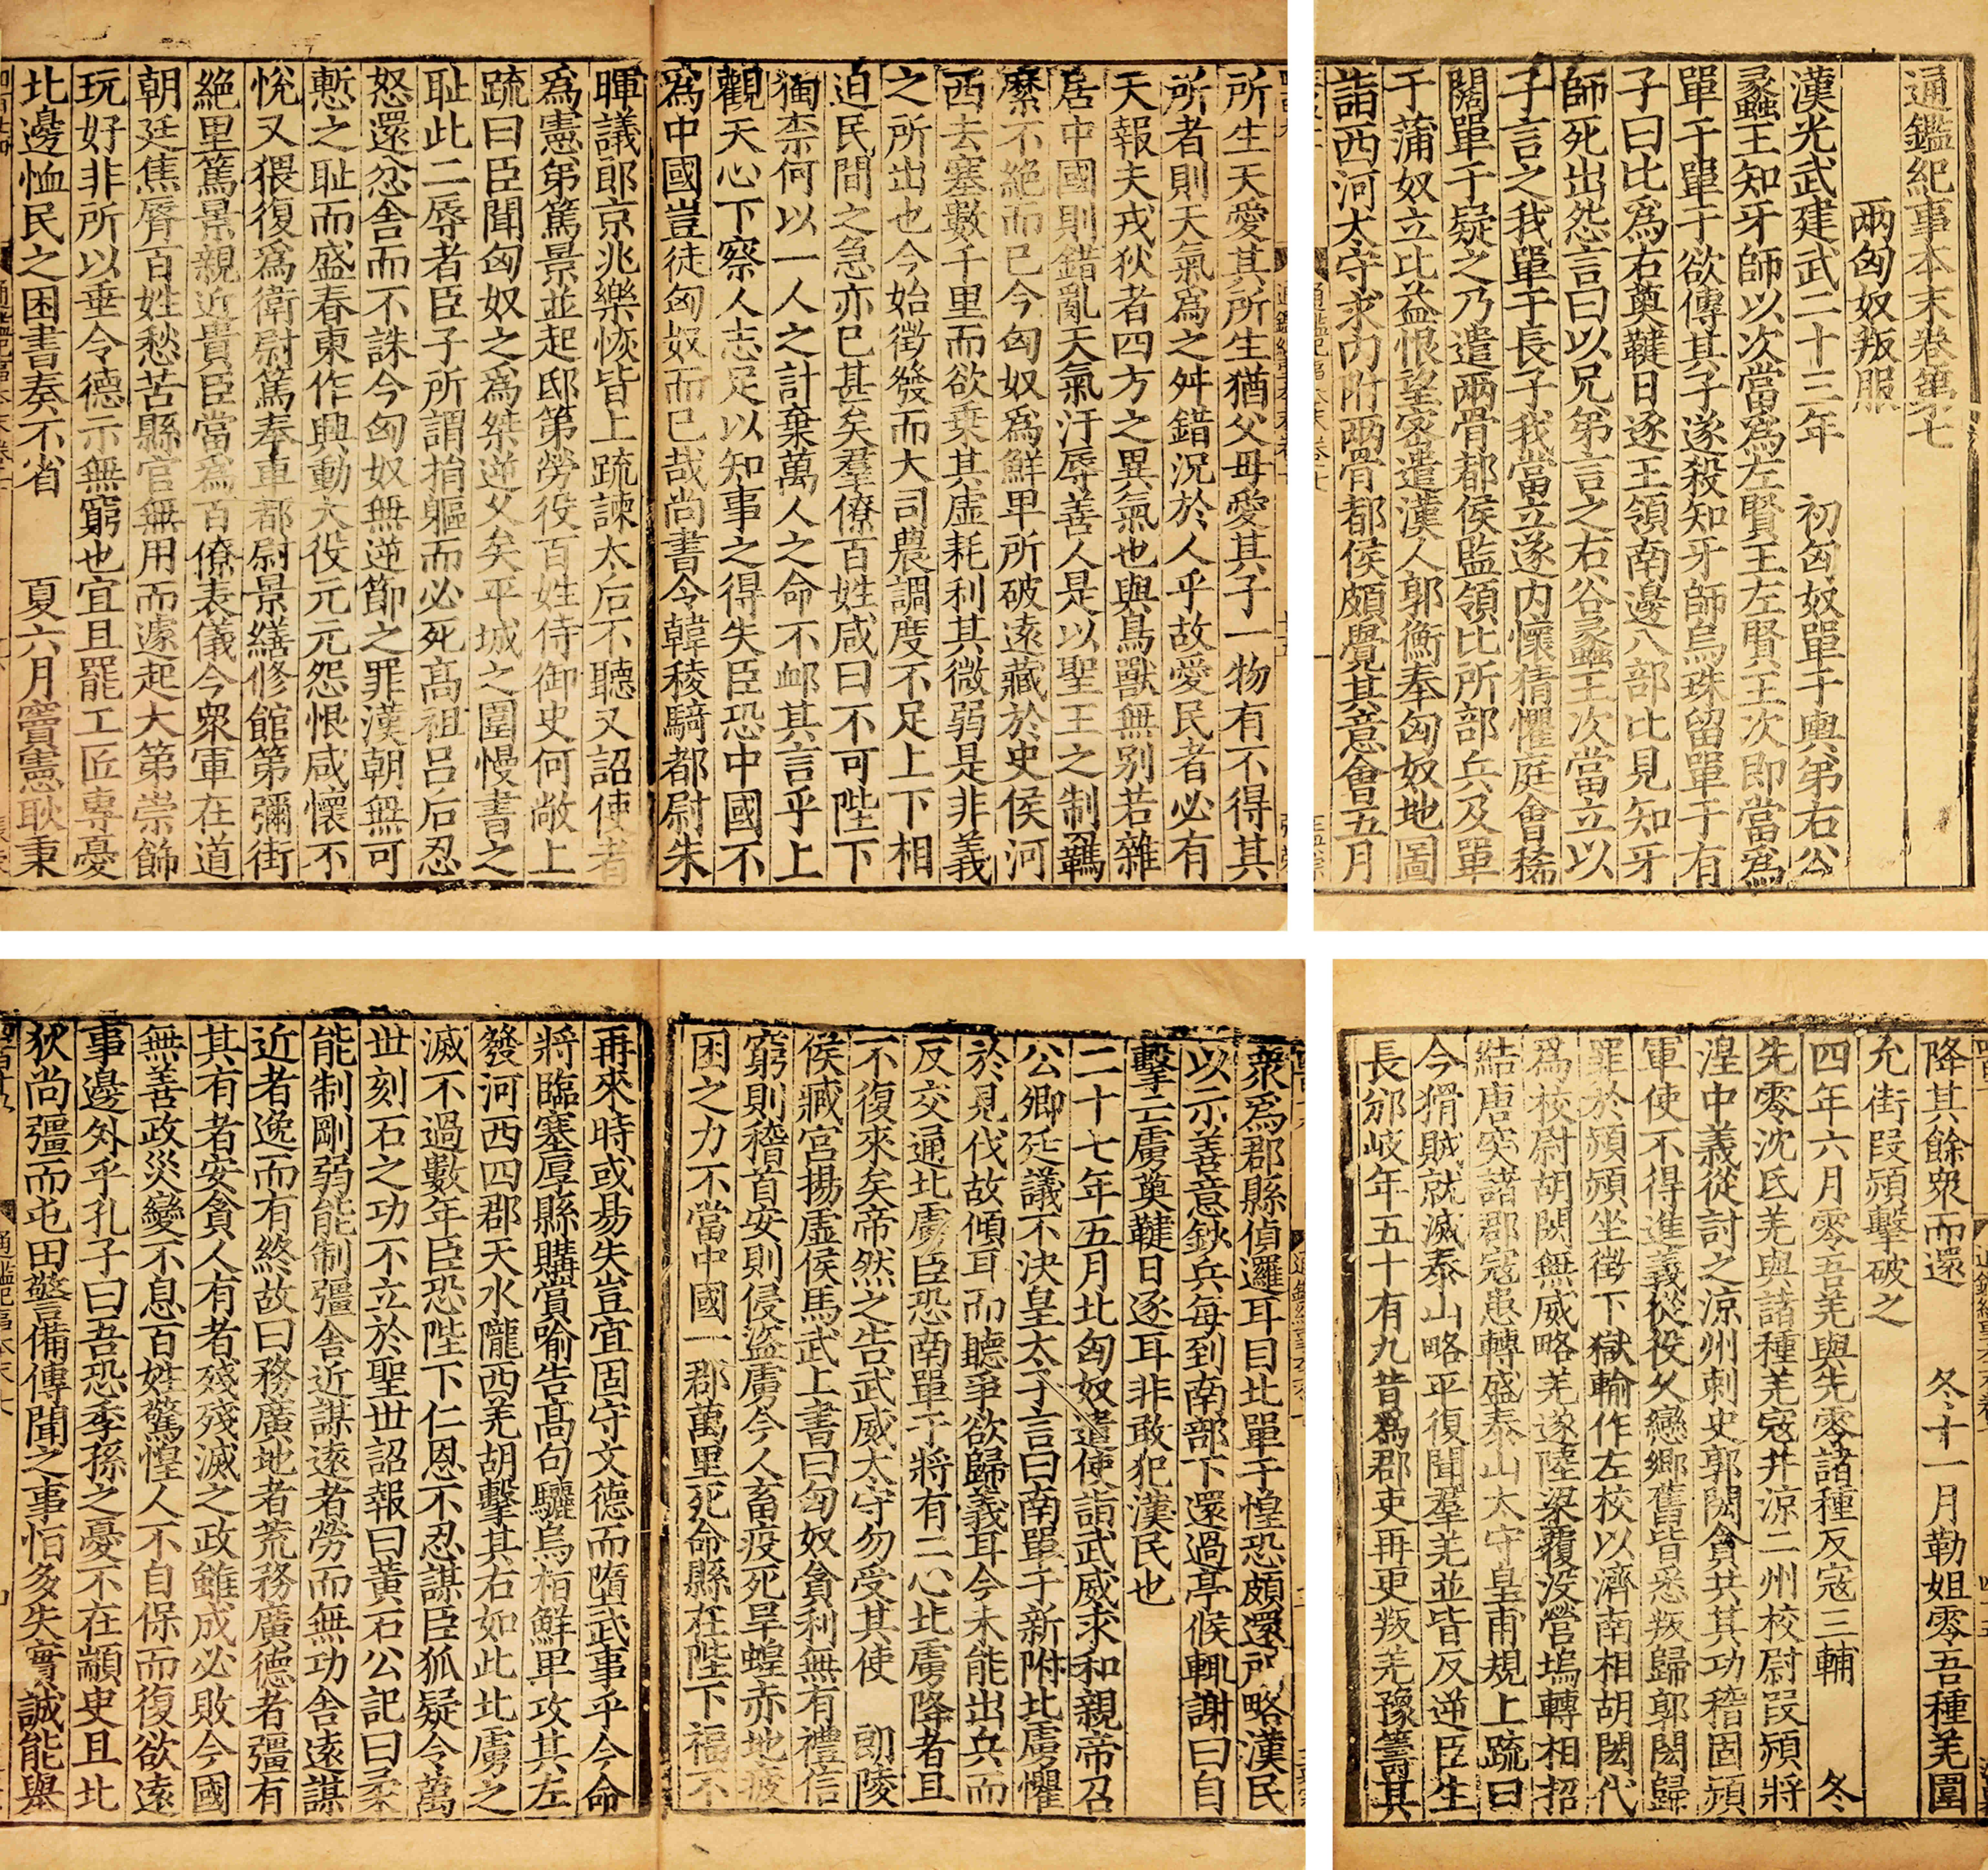 通鑑紀事本末卷第七
兩匈奴叛服
漢光武建武二十三年 初匈奴單于輿弟右谷
蠡王知牙師以次當爲左賢王左賢王次即當爲
單于單于欲傳其子遂殺知牙師烏珠留單于有
子曰比爲右薁鞬日逐王領南邊八部比見知牙
師死出怨言曰以兄弟言之右谷蠡王次當立以
子言之我單于長子我當立遂内懷猜懼庭會稀
闊單于疑之乃遣兩骨都侯監領比所部兵及單
于蒲奴立比益恨望密遣漢人郭衡奉匈奴地圖
詣西河太守求内附兩骨都侯頗覺其意會五月
所生天愛其所生猶父母愛其子一物有不得其
所者則天氣爲之舛錯況於人乎故愛民者必有
天報夫戎狄者四方之異氣也與鳥獸無别若雜
居中國則錯亂天氣汙辱善人是以聖王之制羈
縻不絶而已今匈奴爲鮮卑所破遠藏於史侯河
西去塞數千里而欲乗其虛耗利其微弱是非義
之所出也今始徵發而大司農調度不足上下相
迫民間之急亦已甚矣羣僚百姓咸曰不可陛下
獨柰何以一人之計棄萬人之命不衈其言乎上
觀天心下察人志足以知事之得失臣恐中國不
爲中國豈徒匈奴而已哉尚書令韓稜騎都尉朱
暉議郎京兆樂恢皆上疏諫太后不聽又詔使者
爲憲弟篤景並起邸第勞役百姓侍御史何敞上
疏曰臣聞匈奴之爲桀逆乆矣平城之圍慢書之
恥此二辱者臣子所謂捐軀而必死高祖吕后忍
怒還忿舍而不誅今匈奴無逆節之罪漢朝無可
慙之恥而盛春東作興動大役元元怨恨咸懷不
悅又猥復爲衛尉篤奉車都尉景繕修館第彌街
絶里篤景親近貴臣當爲百僚表儀今衆軍在道
朝廷焦脣百姓愁苦縣官無用而遽起大第崇飾
玩好非所以垂令德示無窮也宜且罷工匠專憂
北邊恤民之困書奏不省 夏六月竇憲耿秉
降其餘衆而還 冬十一月勒姐零吾種羌圍
允街段熲擊破之 冬
四年六月零吾羌與先零諸種反寇三輔
先零沈氐羌與諸種羌寇并涼二州校尉段熲將
湟中義從討之涼州刺史郭閎貪共其功稽固熲
軍使不得進義從役久戀鄉舊皆悉叛歸郭閎歸
罪於熲熲坐徵下獄輸作左校以濟南相胡閎代
爲校尉胡閎無威略羌遂陸梁覆没營塢轉相招
結唐突諸郡寇患轉盛泰山太守皇甫規上疏曰
今猾賊就滅泰山略平復聞羣羌並皆反逆臣生
長邠岐年五十有九昔爲郡吏再更叛羌豫籌其
衆爲郡縣偵邏耳目北單于惶恐頗還所略漢民
以示善意鈔兵每到南部下還過亭候輒謝曰自
擊亡虜薁鞬日逐耳非敢犯漢民也
二十七年五月北匈奴遣使詣武威求和親帝召
公卿廷議不決皇太子言曰南單于新附北虜懼
於見伐故傾耳而聽爭欲歸義耳今未能出兵而
反交通北虜臣恐南單于將有二心北虜降者且
不復來矣帝然之告武威太守勿受其使 朗陵
侯臧宮揚虛侯馬武上書曰匈奴貪利無有禮信
窮則稽首安則侵盜虜今人畜疫死旱蝗赤地疲
困之力不當中國一郡萬里死命縣在陛下福不
再來時或易失豈宜固守文德而墮武事乎今命
將臨塞厚縣購賞喻告高句驪烏桓鮮卑攻其左
發河西四郡天水隴西羌胡擊其右如此北虜之
滅不過數年臣恐陛下仁恩不忍謀臣狐疑令萬
世刻石之功不立於聖世詔報曰黃石公記曰柔
能制剛弱能制彊舍近謀遠者勞而無功舍遠謀
近者逸而有終故曰務廣地者荒務廣德者彊有
其有者安貪人有者殘殘滅之政雖成必敗今國
無善政災變不息百姓驚惶人不自保而復欲遠
事邊外乎孔子曰吾恐季孫之憂不在顓臾且北
狄尚彊而屯田警備傳聞之事恒多失實誠能舉